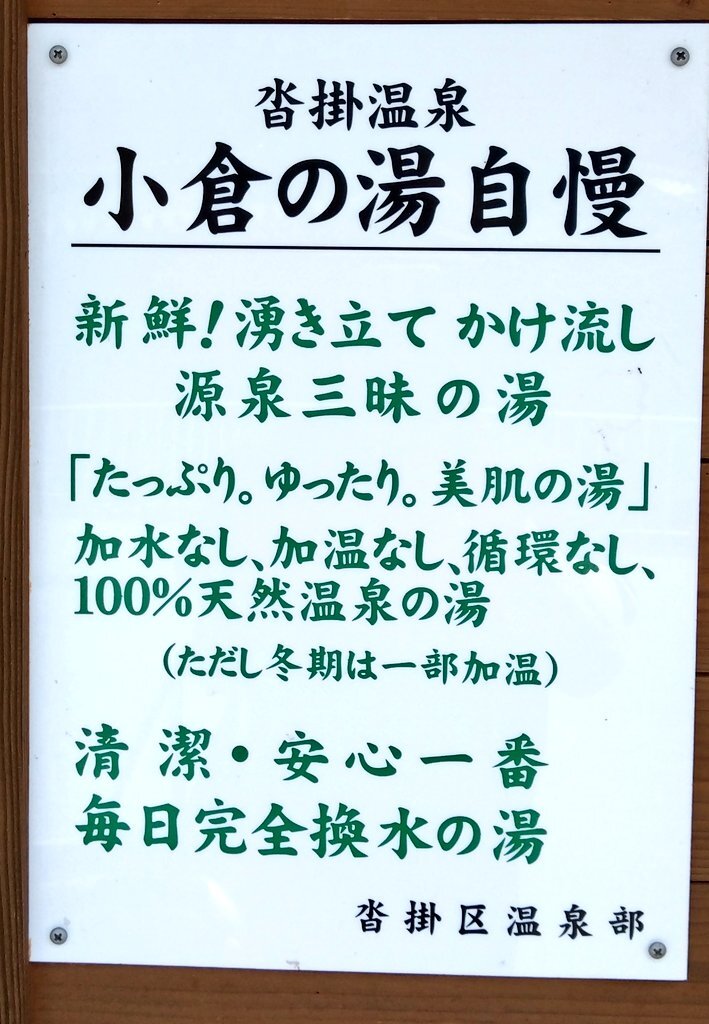 沓掛温泉
小倉の湯自慢
新鮮!湧き立て かけ流し
源泉三昧の湯
「たっぷり。ゆったり。美肌の湯」
加水なし、加温なし、循環なし、
100%天然温泉の湯
(ただし冬期は一部加温)
清潔・安心一番
毎日完全換水の湯
沓掛区温泉部